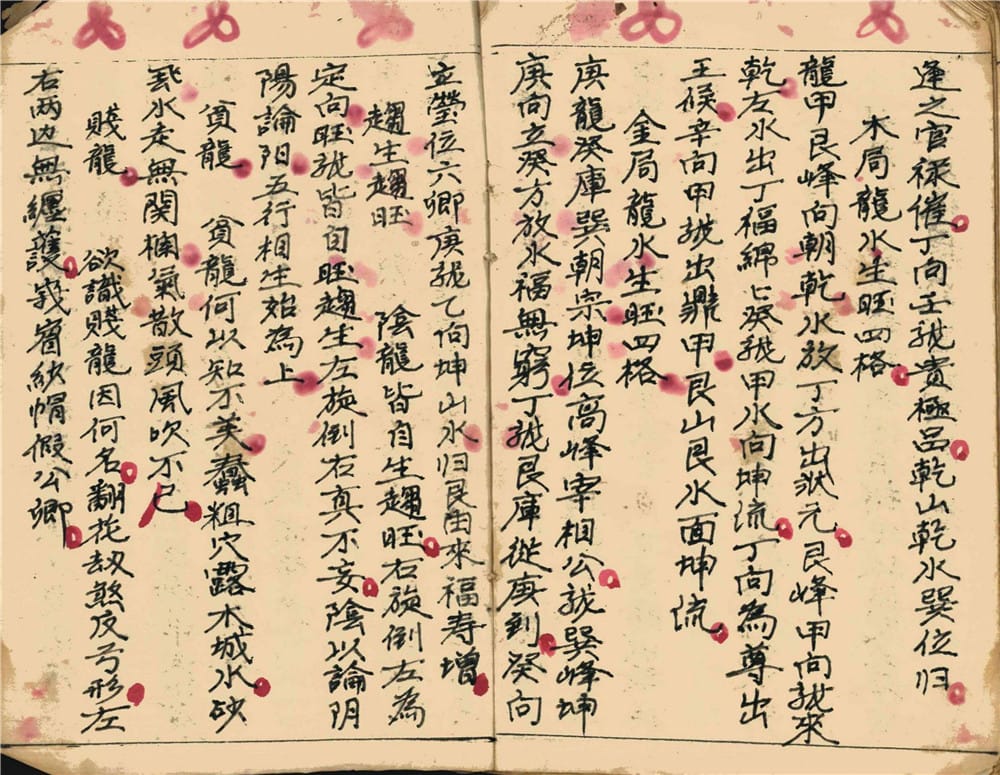 逢之官禄催丁向壬龍贵極品乾山乾水巽位归
木局龍水生旺四格
龍甲艮峰向朝乾水放丁方出狀元艮峰甲向龍來
乾左水出丁福綿〻癸龍甲水向坤流丁向為尊出
王侯辛向甲龍出鼎甲艮山艮水面坤流
金局龍水生旺四格
庚龍癸庫巽朝宗坤位高峰宰相公龍巽峰坤
庚向立癸方放水福無窮丁龍艮庫從庚到癸向
立瑩位六卿庚龍乙向坤山水归艮由來福寿增
趨生趨旺 陰龍皆自生趨旺右旋倒左為
定向旺龍皆自旺趨生左旋倒右真不妄陰以論阴
陽論阳五行相生始為上
貧龍 貧龍何以知不美蠢粗穴露木城水砂
飛水走無関欄氣散頭風吹不已
賤龍 欲識賤龍因何名翻花劫煞反弓形左
右两边無纏護 紗帽假公卿